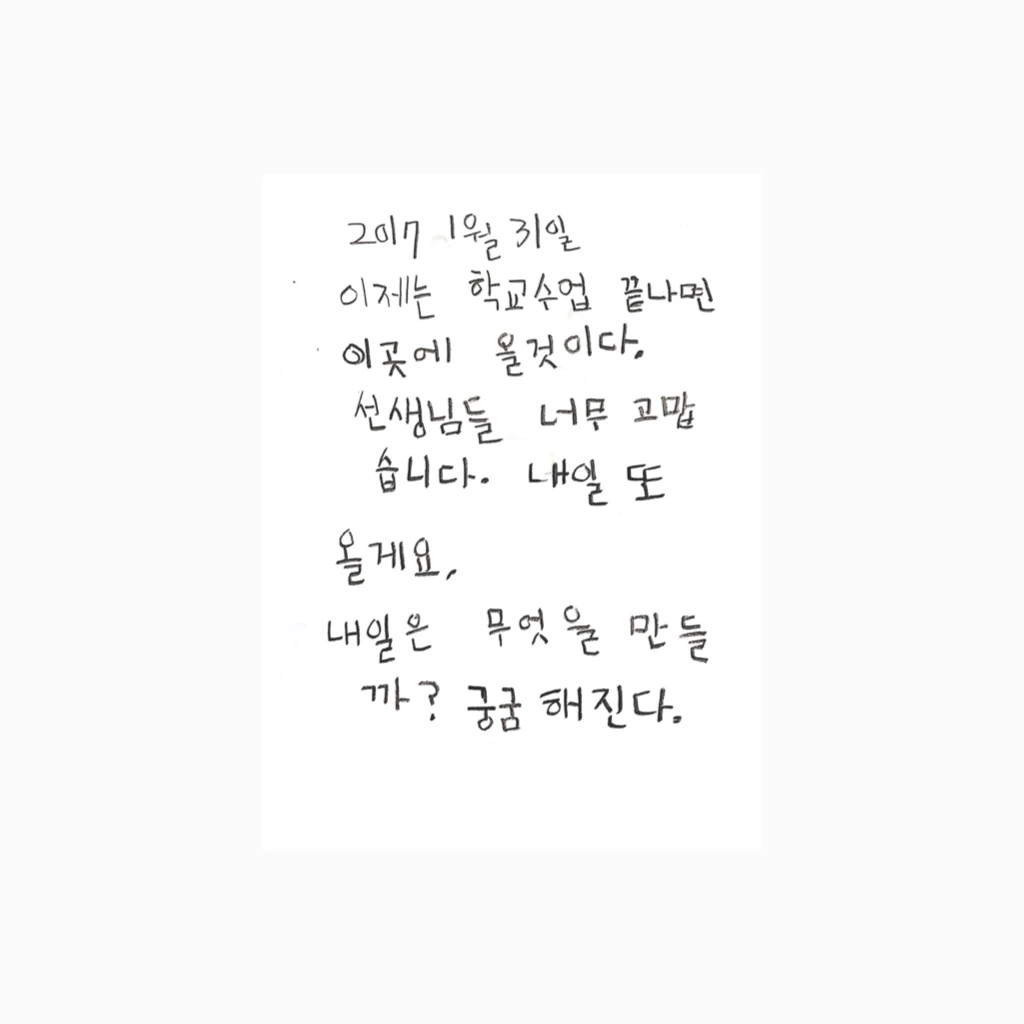 2017 1월 31일
이제는 학교수업 끝나면
이곳에 올것이다.
선생님들 너무 고맙
습니다. 내일 또
올게요,
내일은 무엇을 만들
까? 궁굼 해진다.